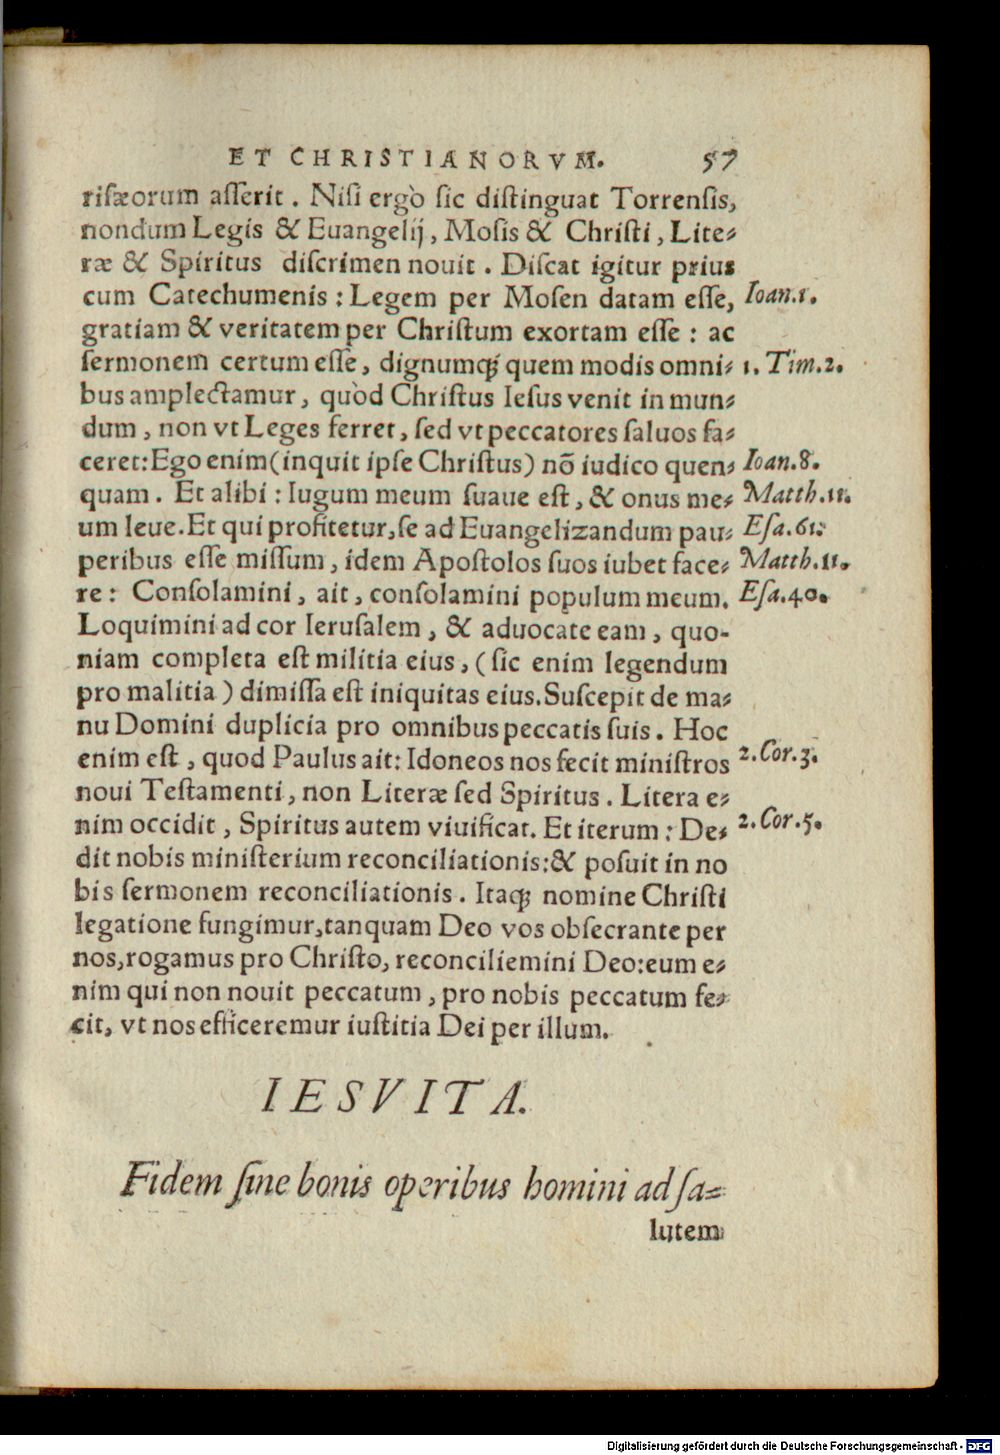 ET CHRISTIANORVM. 57
risæorum asserit. Nisi ergò sic distinguat Torrensis,
nondum Legis & Euangelij, Mosis & Christi, Lite-
ræ & Spiritus discrimen nouit. Discat igitur prius
cum Catechumenis: Legem per Mosen datam esse, Ioan.1.
gratiam & veritatem per Christum exortam esse: ac
sermonem certum esse, dignumq́; quem modis omni- 1. Tim.2.
bus amplectamur, quòd Christus Iesus venit in mun-
dum, non vt Leges ferret, sed vt peccatores saluos fa-
ceret: Ego enim (inquit ipse Christus) nõ iudico quen- Ioan.8.
quam. Et alibi: Iugum meum suaue est, & onus me- Matth.11.
um leue. Et qui profitetur, se ad Euangelizandum pau- Esa.61.
peribus esse missum, idem Apostolos suos iubet face- Matth.11.
re: Consolamini, ait, consolamini populum meum. Esa.40.
Loquimini ad cor Ierusalem, & aduocate eam, quo-
niam completa est militia eius, (sic enim legendum
pro malitia) dimissa est iniquitas eius. Suscepit de ma-
nu Domini duplicia pro omnibus peccatis suis. Hoc
enim est, quod Paulus ait: Idoneos nos fecit ministros 2.Cor.3.
noui Testamenti, non Literæ sed Spiritus. Litera e-
nim occidit, Spiritus autem viuificat. Et iterum: De- 2.Cor.5.
dit nobis ministerium reconciliationis: & posuit in no
bis sermonem reconciliationis. Itaq; nomine Christi
legatione fungimur, tanquam Deo vos obsecrante per
nos, rogamus pro Christo, reconciliemini Deo: eum e-
nim qui non nouit peccatum, pro nobis peccatum fe-
cit, vt nos efficeremur iustitia Dei per illum.
IESVITA.
Fidem sine bonis operibus homini ad sa-
lutem
Digitalisierung gefördert durch die Deutsche Forschungsgemeinschaft - DFG